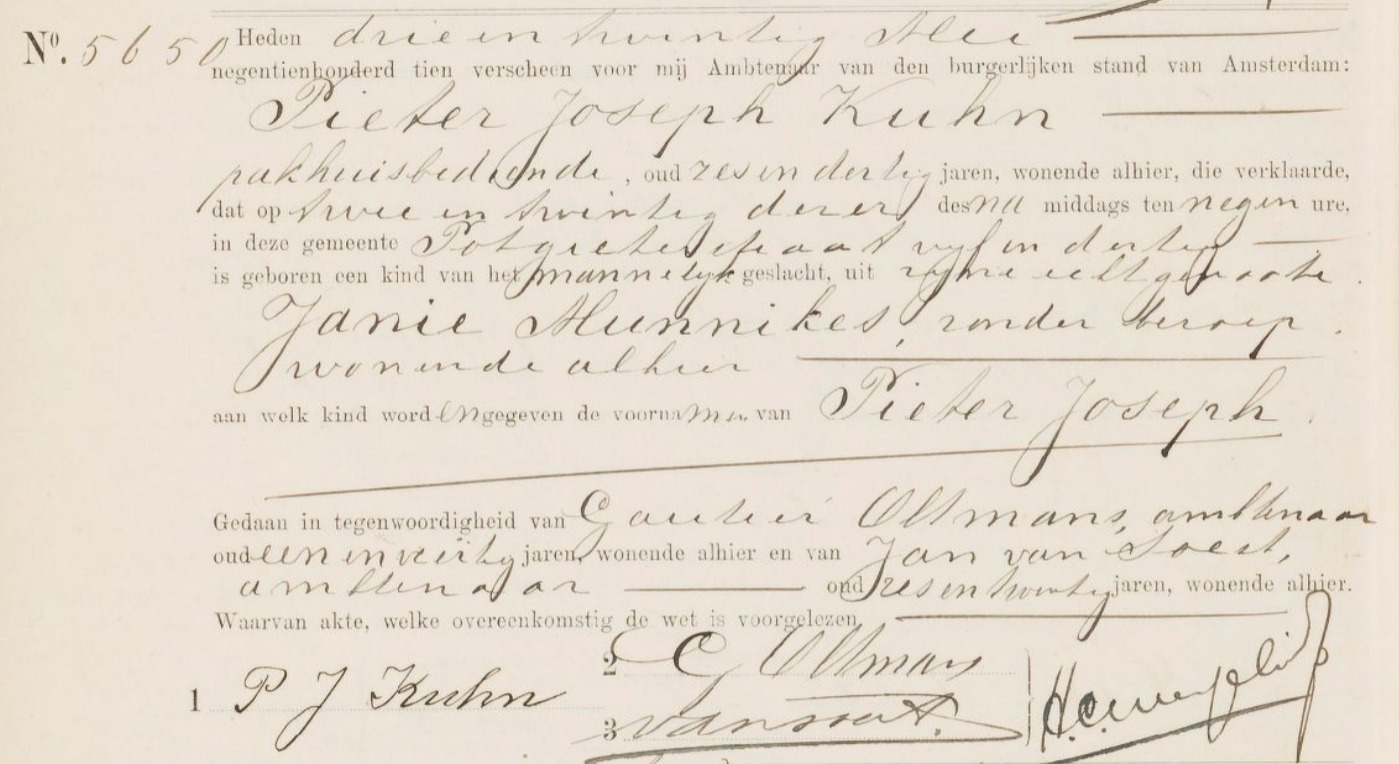 Nº. 5650 Heden drie en twintig Mei
negentienhonderd tien verscheen voor mij Ambtenaar van den burgerlijken stand van Amsterdam:
Pieter Joseph Kuhn
pakhuisbediende, oud zes en dertig jaren, wonende alhier, die verklaarde,
dat op twee en twintig dezer des na middags ten negen ure,
in deze gemeente Potgieterstraat vijf en dertig
is geboren een kind van het mannelijk geslacht, uit zijne echtgenoote
Janie Munnikes, zonder beroep.
wonende alhier
aan welk kind worden gegeven de voornamen van Pieter Joseph.
Gedaan in tegenwoordigheid van Oltmans, ambtenaar
oud een en jaren, wonende alhier en van Jan van Soest,
ambtenaar oud zes en twintig jaren, wonende alhier.
Waarvan akte, welke overeenkomstig de wet is voorgelezen.
1 P J Kuhn
2 G Oltmans
3 van Soest.